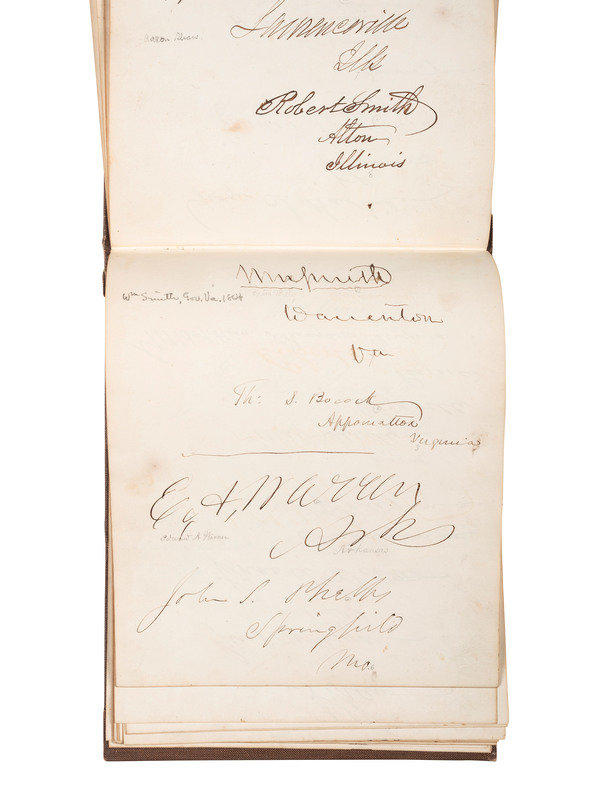 Lawrenceville
Ills
Aaron Shaw
Robert Smith
Alton
Illinois
Wm Smith
Wm Smith, Gov. Va. 1864
Warrenton
Va
Th: S. Bocock
Appomattox
Virginia
E, A, Warren
Edward A Warren
Ark
Arkansas
John S. Phelps
Springfield
Mo.